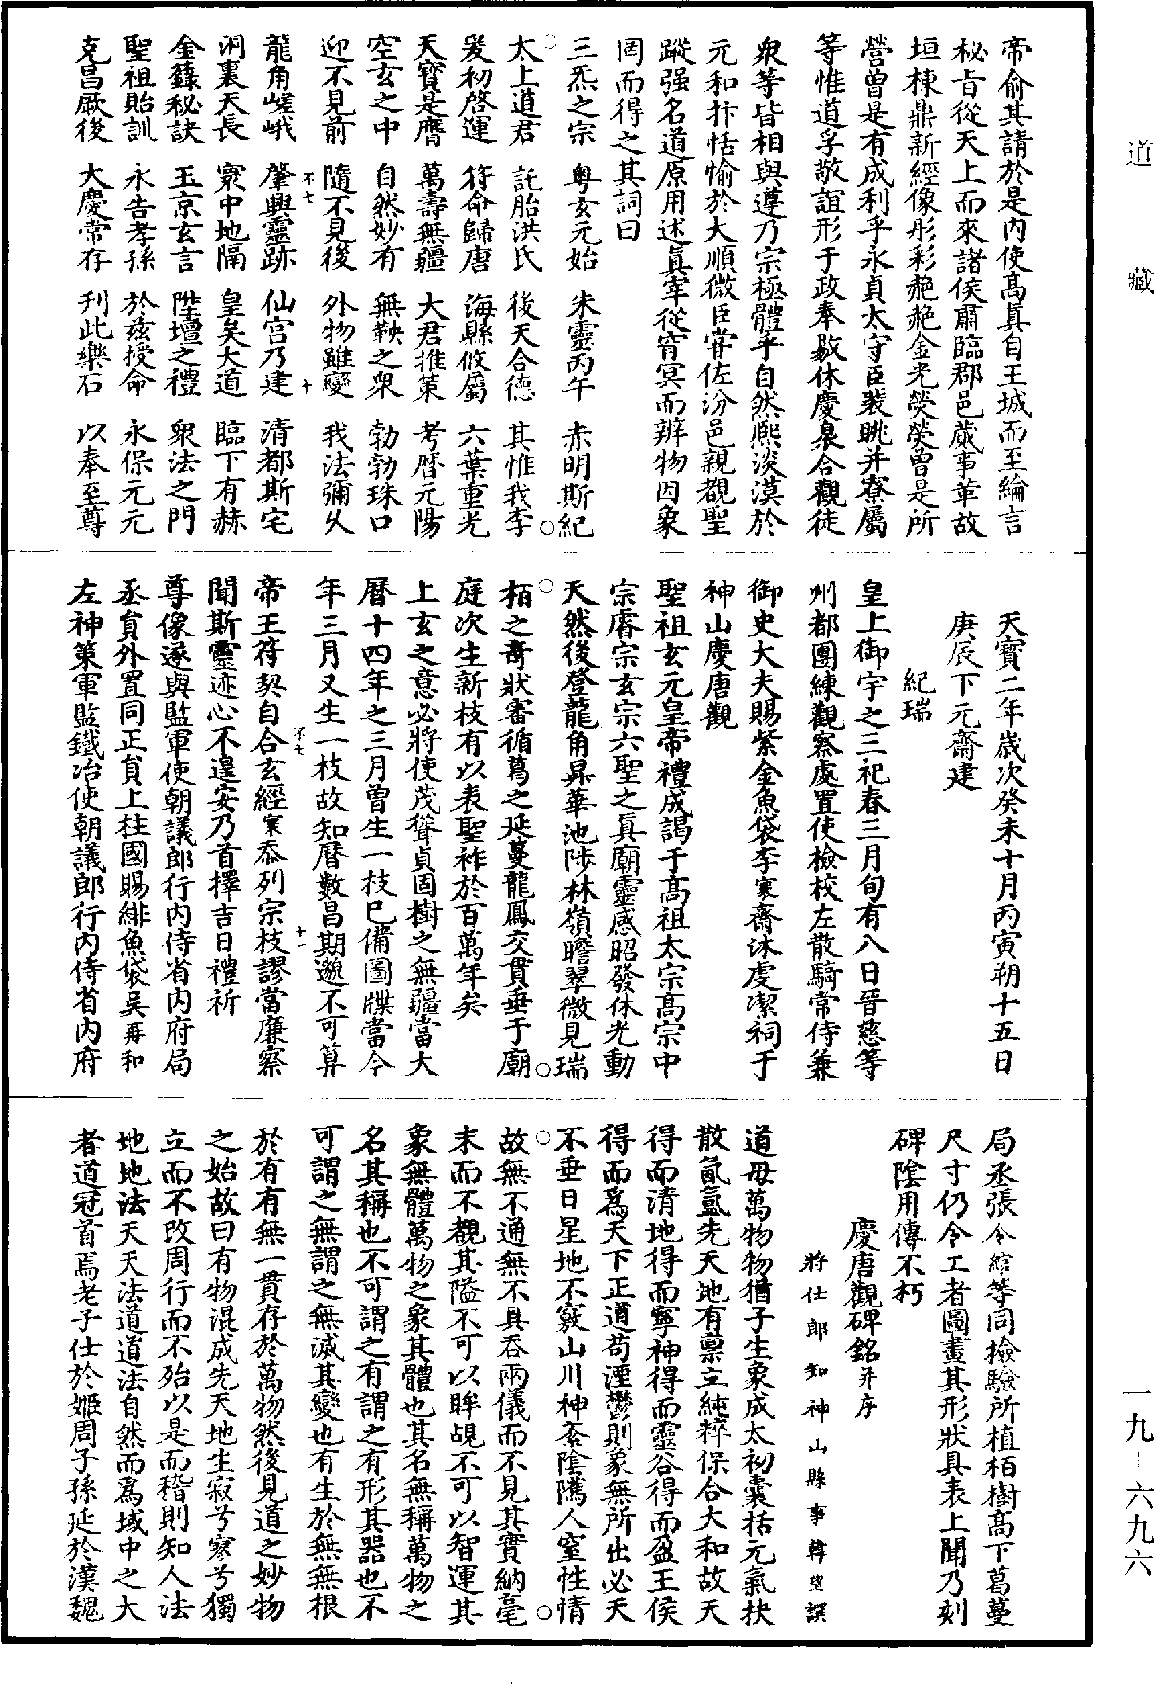 道藏
帝俞其請於是內使高真自王城而至綸言
秘旨從天上而來諸侯肅臨郡邑歲事革故
垣棟鼎新經像彤彩赩赩金光熒熒曾是所
營曾是有成利乎永貞太守臣裴眺并寮屬
等惟道孚敬誼形于政奉敭休慶裊合觀徒
衆等皆相與遵乃宗極體乎自然熙淡漠於
元和抃恬愉於大順微臣甞佐汾邑親覩聖
蹤强名道原用述真宰從窅冥而辨物因象
罔而得之其詞曰
三炁之宗　粤玄元始　朱靈丙午　赤明斯紀
太上道君　託胎洪氏　後天合德　其惟我李
爰初啓運　符命歸唐　海縣攸屬　六葉重光
天寶是膺　萬壽無疆　大君推策　考曆元陽
空玄之中　自然妙有　無鞅之衆　勃勃珠口
迎不見前　隨不見後　外物雖變　我法彌久
龍角嵯峨　肇興靈跡　仙宮乃建　清都斯宅
洞裏天長　寰中地隔　皇矣大道　臨下有赫
金籙秘訣　玉京玄言　陛壇之禮　衆法之門
聖祖貽訓　永告孝孫　於兹授命　永保元元
克昌厥後　大慶常存　刊此樂石　以奉至尊
不七
十
天寶二年歲次癸未十月丙寅朔十五日
庚辰下元齋建
紀瑞
皇上御宇之三祀春三月旬有八日晉慈等
州都團練觀察處置使檢校左散騎常侍兼
御史大夫賜紫金魚袋李寒齋沐虔潔祠于
神山慶唐觀
聖祖玄元皇帝禮成謁于高祖太宗高宗中
宗睿宗玄宗六聖之真廟靈感昭發休光動
天然後登龍角昇華池陟林嶺瞻翠微見瑞
栢之奇狀審循葛之延蔓龍鳳交貫垂于廟
庭次生新枝有以表聖祚於百萬年矣
上玄之意必將使茂聳貞固樹之無疆當大
曆十四年之三月曾生一枝已備圖牒當今
年三月又生一枝故知曆數昌期邈不可算
帝王符契自合玄經寒忝列宗枝謬當廉察
聞斯靈迹心不遑安乃首擇吉日禮祈
尊像遂與監軍使朝議郎行內侍省內府局
丞負外置同正負上柱國賜緋魚袋吳再和
左神策軍監鐵冶使朝議郎行內侍省內府
不七
十一
局丞張令綰等同檢驗所植栢樹高下葛蔓
尺寸仍令工者圖畫其形狀具表上聞乃刻
碑陰用傳不朽
慶唐觀碑銘并序
將仕郎知神山縣事韓望譔
道母萬物物猶子生象成太初囊括元氣抶
散氤氳先天地有禀立純粹保合大和故天
得而清地得而寧神得而靈谷得而盈王侯
得而爲天下正道苟湮鬱則象無所出必天
不垂日星地不竅山川神紊陰隲人窒性情
故無不通無不具吞兩儀而不見其實納毫
末而不覩其隘不可以眸覘不可以智運其
象無體萬物之象其體也其名無稱萬物之
名其稱也不可謂之有謂之有形其器也不
可謂之無謂之無滅其變也有生於無無根
於有有無一貫存於萬物然後見道之妙物
之始故曰有物混成先天地生寂兮寥兮獨
立而不改周行而不殆以是而稽則知人法
地地法天天法道道法自然而爲域中之大
者道冠首焉老子仕於姬周子孫延於漢魏
一九－六九六